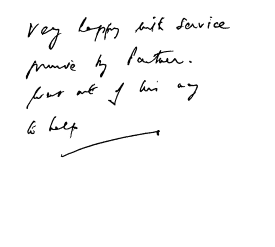 Very happy with service
provide by Partner.
Went out of his way
to help